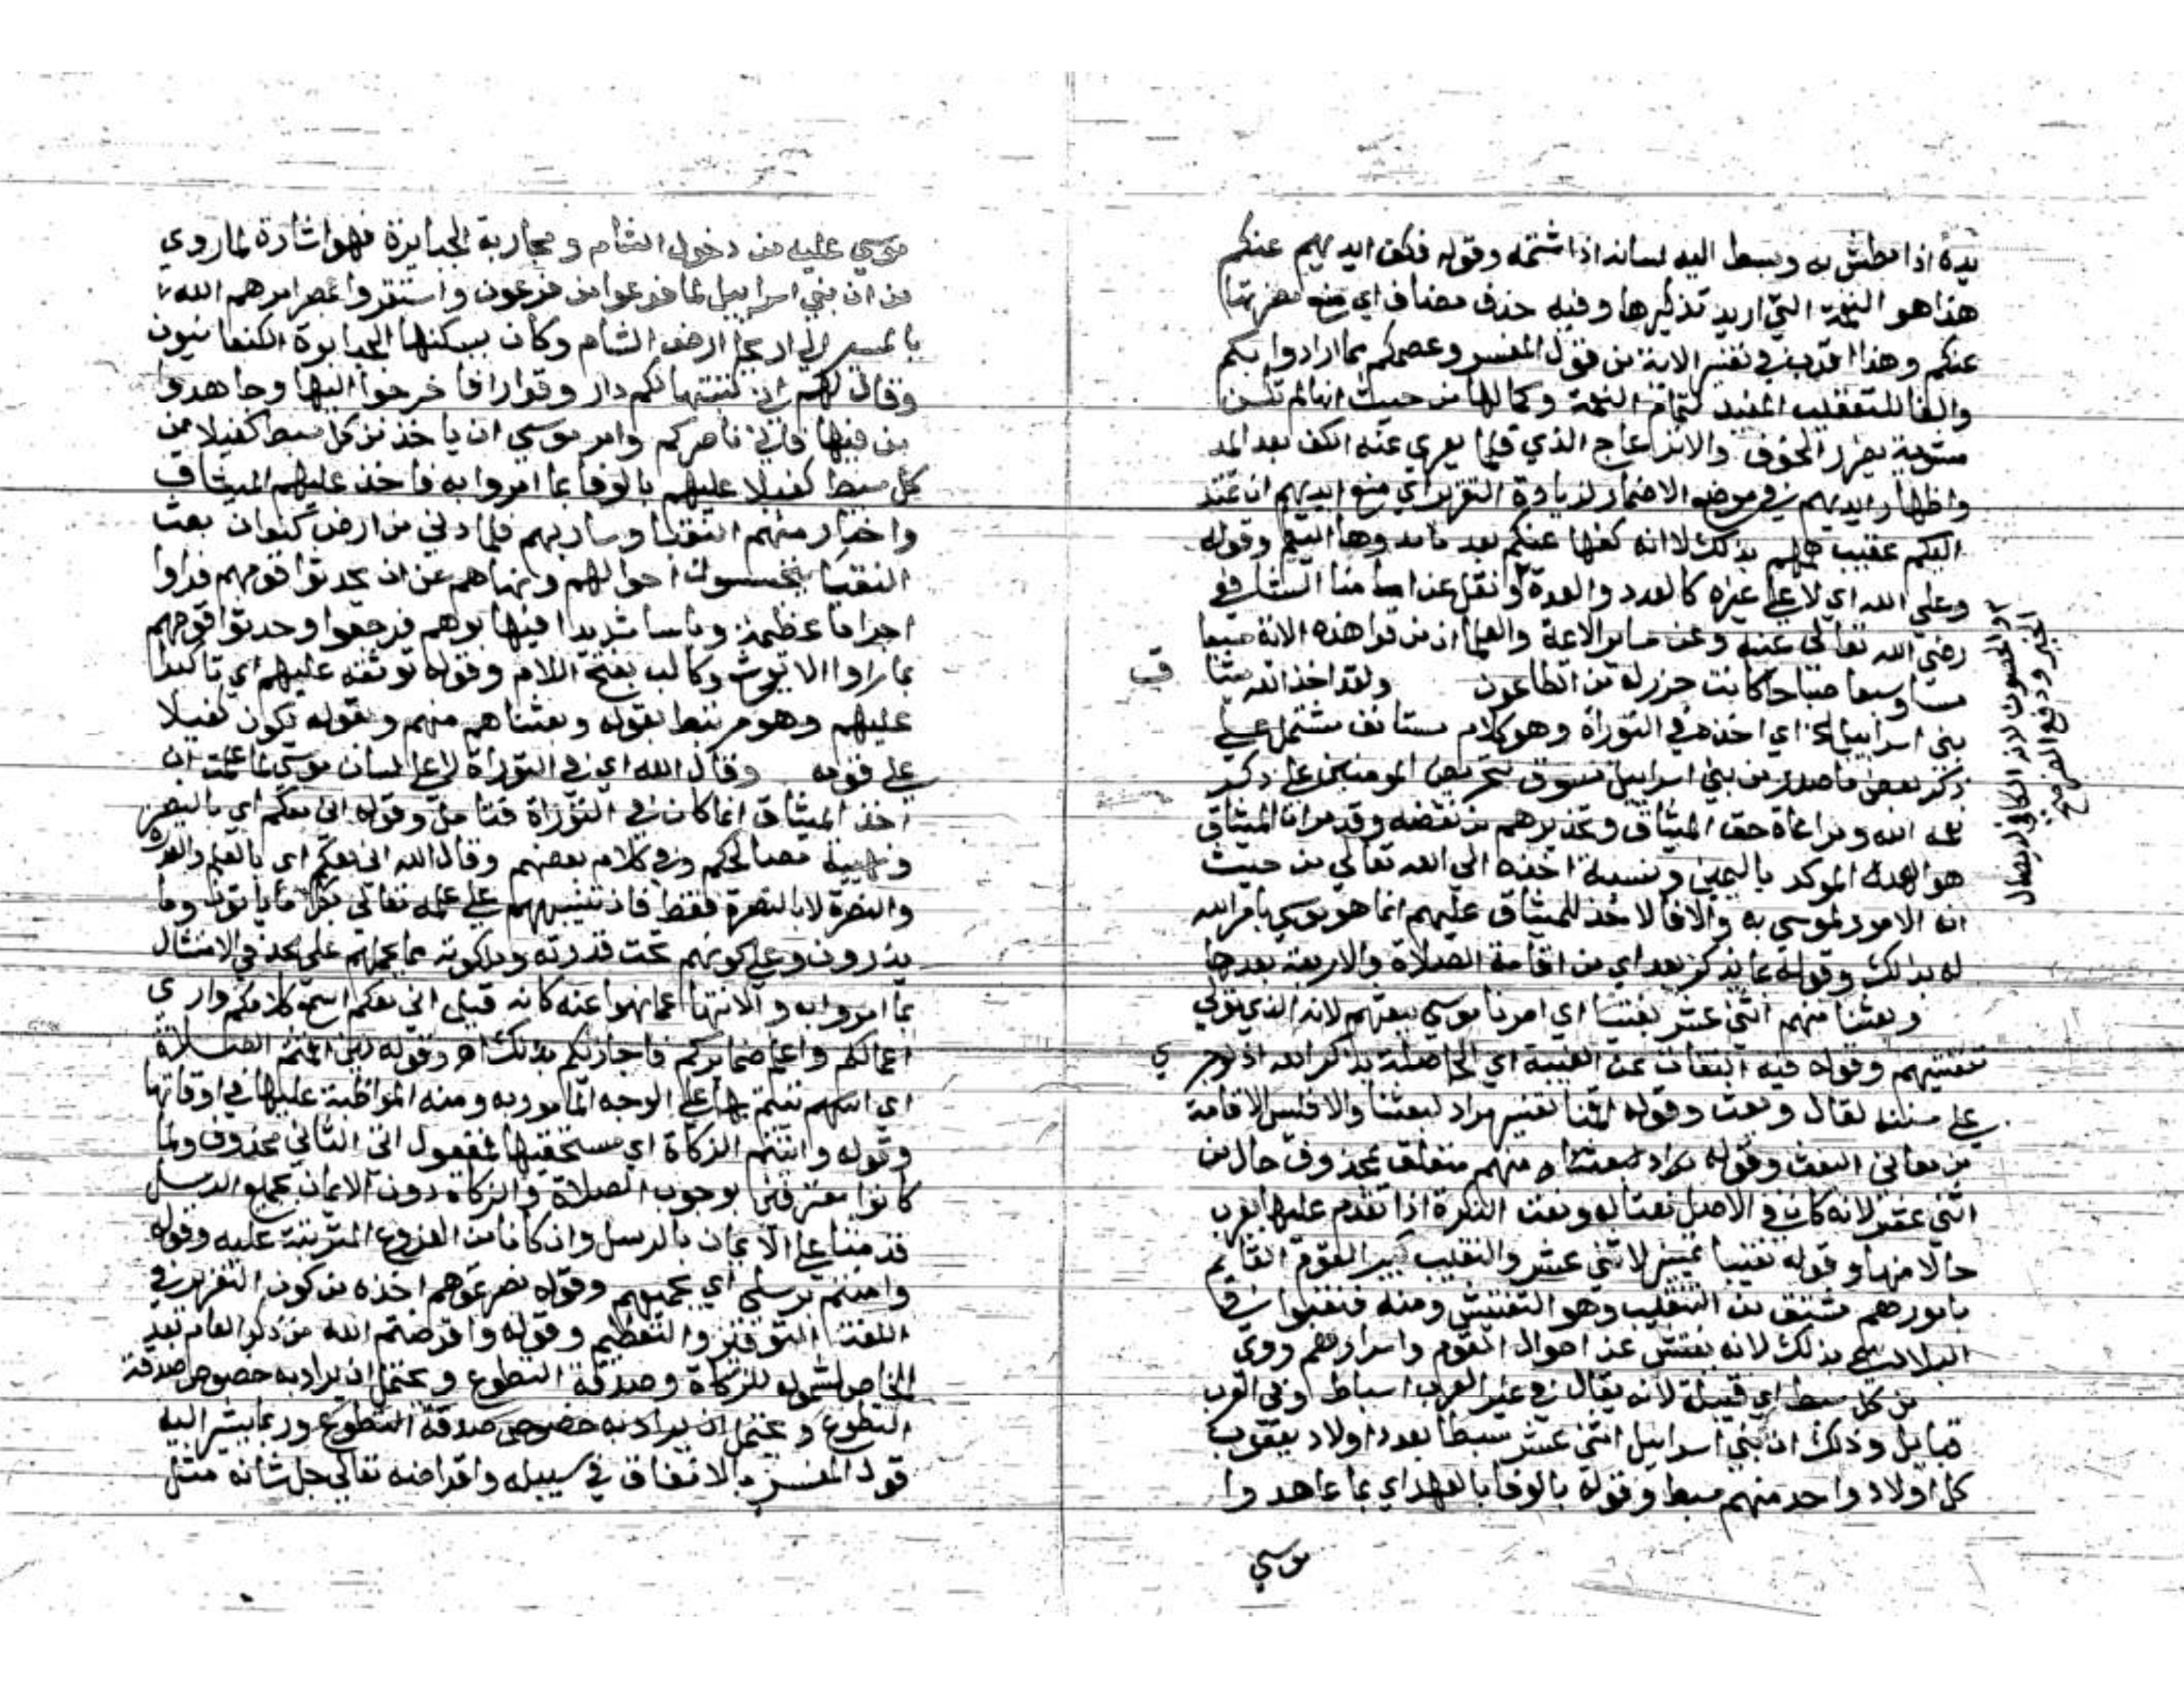 يده اذا بطش به وبسط اليه لسانه اذا شتمه وقوله فكف ايديهم عنكم
هذا هو النعمة التي اريد تذكيرها وفيه حذف مضاف اي منع مضرتها
عنكم وهذا اقرب في تفسير الاية من قول المفسر وعصمكم مما ارادوا بكم
والفا للتعقيب المفيد لتمام النعمة وكمالها من حيث انها لم تكن
مشوبة بضرر الخوف والانزعاج الذي قلما يعري عنه الكف بعد المد
واظهار ايديهم في موضع الاضمار لزيادة التقرير اي منع ايديهم ان تمتد
اليكم عقيب همهم بذلك لا انه كفها عنكم بعد ما مدوها اليكم وقوله
وعلي الله اي لا علي غيره كالعدد والعدة ونقل عن امامنا الشافعي
رضي الله تعالي عنه وعن ساير الاعة والعلما ان من قرا هذه الاية سبعا
مساوسبعا صباحا كانت حرزا له من الطاعون ولقد اخذ الله ميثا ق
بني اسراييل اي اخذه في التوراة وهو كلام مستانف مشتمل علي
ذكر بعض ما صدر من بني اسراييل مسوق لتحريض المومنين علي ذكر
نعمة الله ومراعاة حق الميثاق وتحذيرهم من نقضه وقد مر ان الميثاق
هو العهد الموكد باليمين ونسبة اخذه الي الله تعالي من حيث
انه الامر لموسي به والا فالاخذ للميثاق عليهم انما هو موسي بامر الله
له بذلك وقوله بما يذكر بعد اي من اقامة الصلاة والاربعة بعدها
وبعثنا منهم اثني عشر نقيبا اي امرنا موسي ببعثهم لانه الذي تولي
تفتيشهم وقوله فيه التفات عن الغيبة اي الحاصلة بذكر الله اذ لو جري
علي سننه لقال وبعث وقوله اقمنا تفسير مراد لبعثنا والا فليس الاقامة
من معاني البعث وقوله منهم متعلق بمحذوف حال من
اثني عشر لانه كان في الاصل نعتا له ونعت النكرة اذا تقدم عليها يعرب
حالا منها وقوله نقيبا تمييز لاثني عشر والنقيب كبير القوم القايم
بامورهم مشتق من التنقيب وهو التفتيش ومنه فنقبوا في
البلاد سمي بذلك لانه يفتش عن احوال القوم واسرارهم وقوله
من كل سبط اي قبيلة لانه يقال في غير العرب اسباط وفي العرب
قبايل وذلك ان بني اسراييل اثني عشر سبطا بعدد اولاد يعقوب
كل اولاد واحد منهم سبط وقوله بالوفا بالعهد اي بما عاهدوا
موسي
موسي عليه من دخول الشام ومحاربة الجبابرة فهو اشارة لما روي
من ان بني اسراييل لما فرغوا من فرعون واستقروا بمصر امرهم الله
بالمسير الي اريحا ارض الشام وكان يسكنها الجبابرة الكنعانيون
وقال لهم اني كتبتها لكم دار وقرارا فاخرجوا اليها وجاهدوا
من فيها فاني ناصركم وامر موسي ان ياخذ من كل سبط كفيلا من
كل سبط كفيلا عليهم بالوفا بما امروا به فاخذ عليهم الميثاق
واختار منهم النقبا وسار بهم فلما دني من ارض كنعان بعث
النقبا يتجسسون احوالهم ونهاهم عن ان يحدثوا قومهم فراوا
اجراما عظيمة وباسا شديدا فهابوهم فرجعوا وحدثوا قومهم
بما راوا الا يوشع وكالب بفتح اللام وقوله توثقه عليهم اي تاكيدا
عليهم وهو مرتبط بقوله وبعثنا منهم وبقوله يكون كفيلا
علي قومه وقال الله اي في التوراة لا علي لسان موسي لما علمت ان
اخذ الميثاق انما كان في التوراة فتامل وقوله اني معكم اي بالنصر
وتهيية مصالحكم وفي كلام بعضهم وقال الله اني معكم اي بالعلم والقدرة
والنصرة لا بالنصرة فقط فان تنبيههم علي علمه تعالي بكل ما ياتون وما
يذرون وعلي كونهم تحت قدرته وملكوته مما يحملهم علي الجد في الامتثال
بما امروا به والانتها عما نهوا عنه كانه قيل اني معكم اسمع كلامكم واري
اعمالكم واعلم ضمايركم فاجازيكم بذلك اه وقوله لين اقمتم الصلاة
اي اتيتم بها علي الوجه المامور به ومنه المواظبة عليها في اوقاتها
وقوله واتيتم الزكاة اي مستحقيها فمفعول اتي الثاني محذوف ولما
كانوا معترفين بوجوب الصلاة والزكاة دون الايمان بجميع الرسل
قدمتا علي الايمان بالرسل وان كانا من الفروع المترتبة عليه وقوله
وامنتم برسلي اي بجميعهم وقوله نصرتموهم اخذه من كون التعزير في
اللغة التوقير والتعظيم وقوله واقرضتم الله من ذكر العام بعد
الخاص لشموله للزكاة وصدقة التطوع ويحتمل ان يراد به خصوص صدقة
التطوع ويحتمل ان يراد به خصوص صدقة التطوع وربما يشير اليه
قول المفسر بالانفاق في سبيله واقراضه تعالي جل شانه مثل